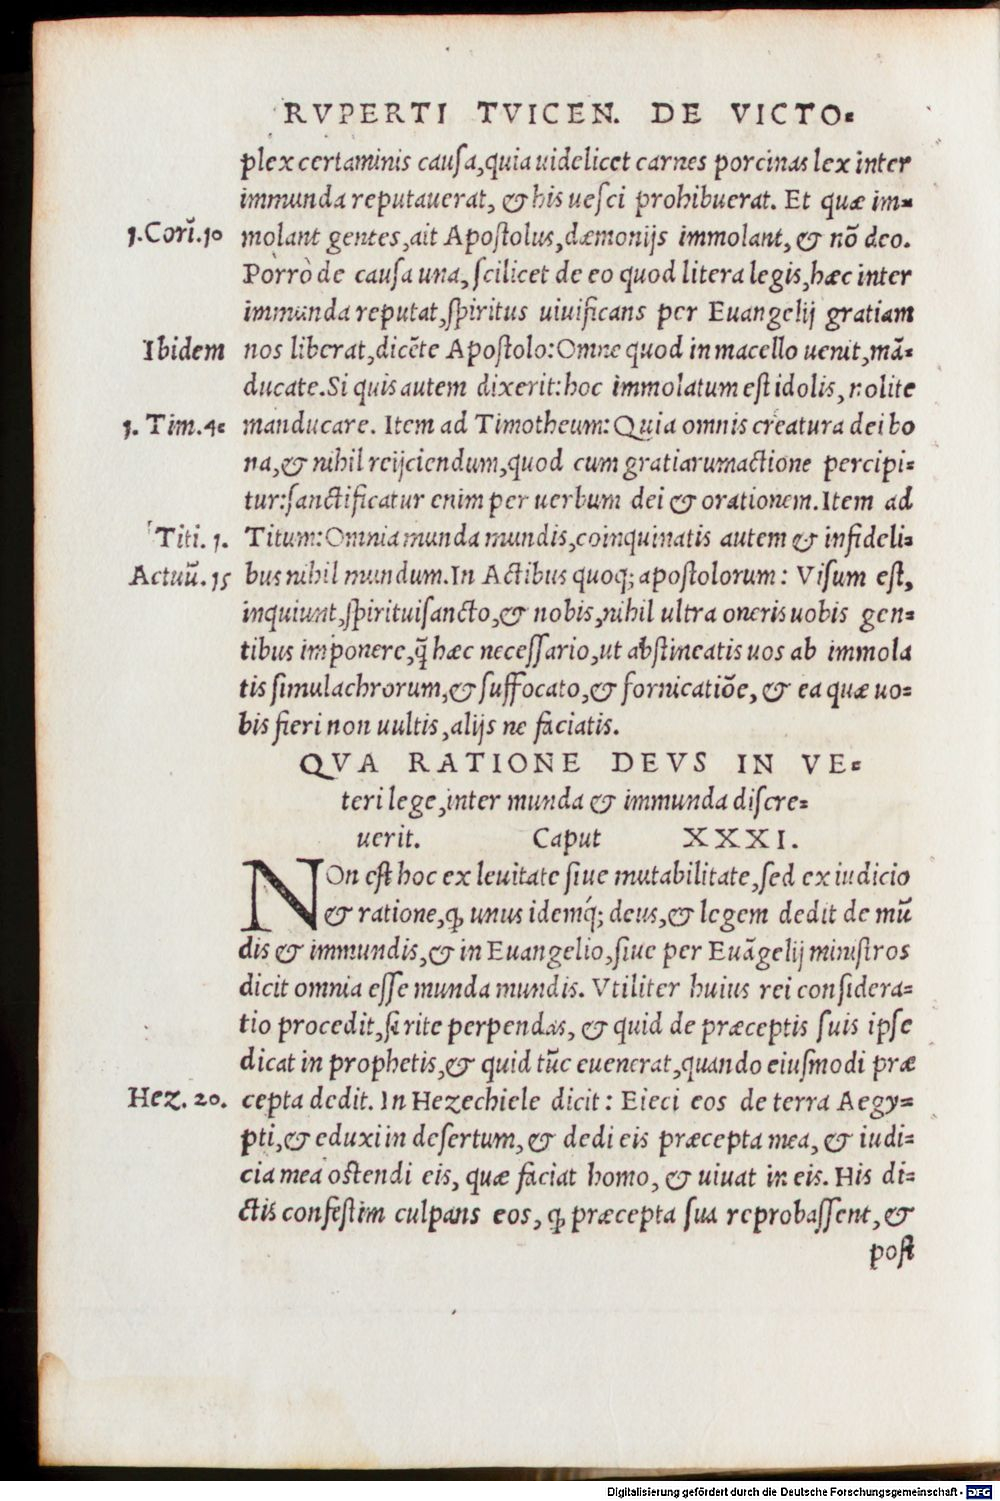 RVPERTI TVICEN. DE VICTO⸗
plex certaminis causa, quia uidelicet carnes porcinas lex inter
immunda reputauerat, & his uesci prohibuerat. Et quæ im⸗
1.Corĩ.10 molant gentes, ait Apostolus, dæmonijs immolant, & nõ deo.
Porrò de causa una, scilicet de eo quod litera legis, hæc inter
immunda reputat, spiritus uiuificans per Euangelij gratiam
Ibidem nos liberat, dicẽte Apostolo: Omne quod in macello uenit, mã⸗
ducate. Si quis autem dixerit: hoc immolatum est idolis, nolite
1. Tim.4⸗ manducare. Item ad Timotheum: Quia omnis creatura dei bo
na, & nihil reijciendum, quod cum gratiarumactione percipi⸗
tur: sanctificatur enim per uerbum dei & orationem. Item ad
Titi. 1. Titum: Omnia munda mundis, coinquinatis autem & infideli⸗
Actuũ. 15 bus nihil mundum. In Actibus quoq; apostolorum: Visum est,
inquiunt, spirituisancto, & nobis, nihil ultra oneris uobis gen⸗
tibus imponere, q̃ hæc necessario, ut abstineatis uos ab immola
tis simulachrorum, & suffocato, & fornicatiõe, & ea quæ uo⸗
bis fieri non uultis, alijs ne faciatis.
QVA RATIONE DEVS IN VE⸗
teri lege, inter munda & immunda discre⸗
uerit. Caput XXXI.
NOn est hoc ex leuitate siue mutabilitate, sed ex iudicio
& ratione, ꝙ unus idemq́; deus, & legem dedit de mũ
dis & immundis, & in Euangelio, siue per Euãgelij ministros
dicit omnia esse munda mundis. Vtiliter huius rei considera⸗
tio procedit, si rite perpendas, & quid de præceptis suis ipse
dicat in prophetis, & quid tũc euenerat, quando eiusmodi præ
Hez. 20. cepta dedit. In Hezechiele dicit: Eieci eos de terra Aegy⸗
pti, & eduxi in desertum, & dedi eis præcepta mea, & iudi⸗
cia mea ostendi eis, quæ faciat homo, & uiuat in eis. His di⸗
ctis confestim culpans eos, ꝙ præcepta sua reprobassent, &
post
Digitalisierung gefördert durch die Deutsche Forschungsgemeinschaft - DFG